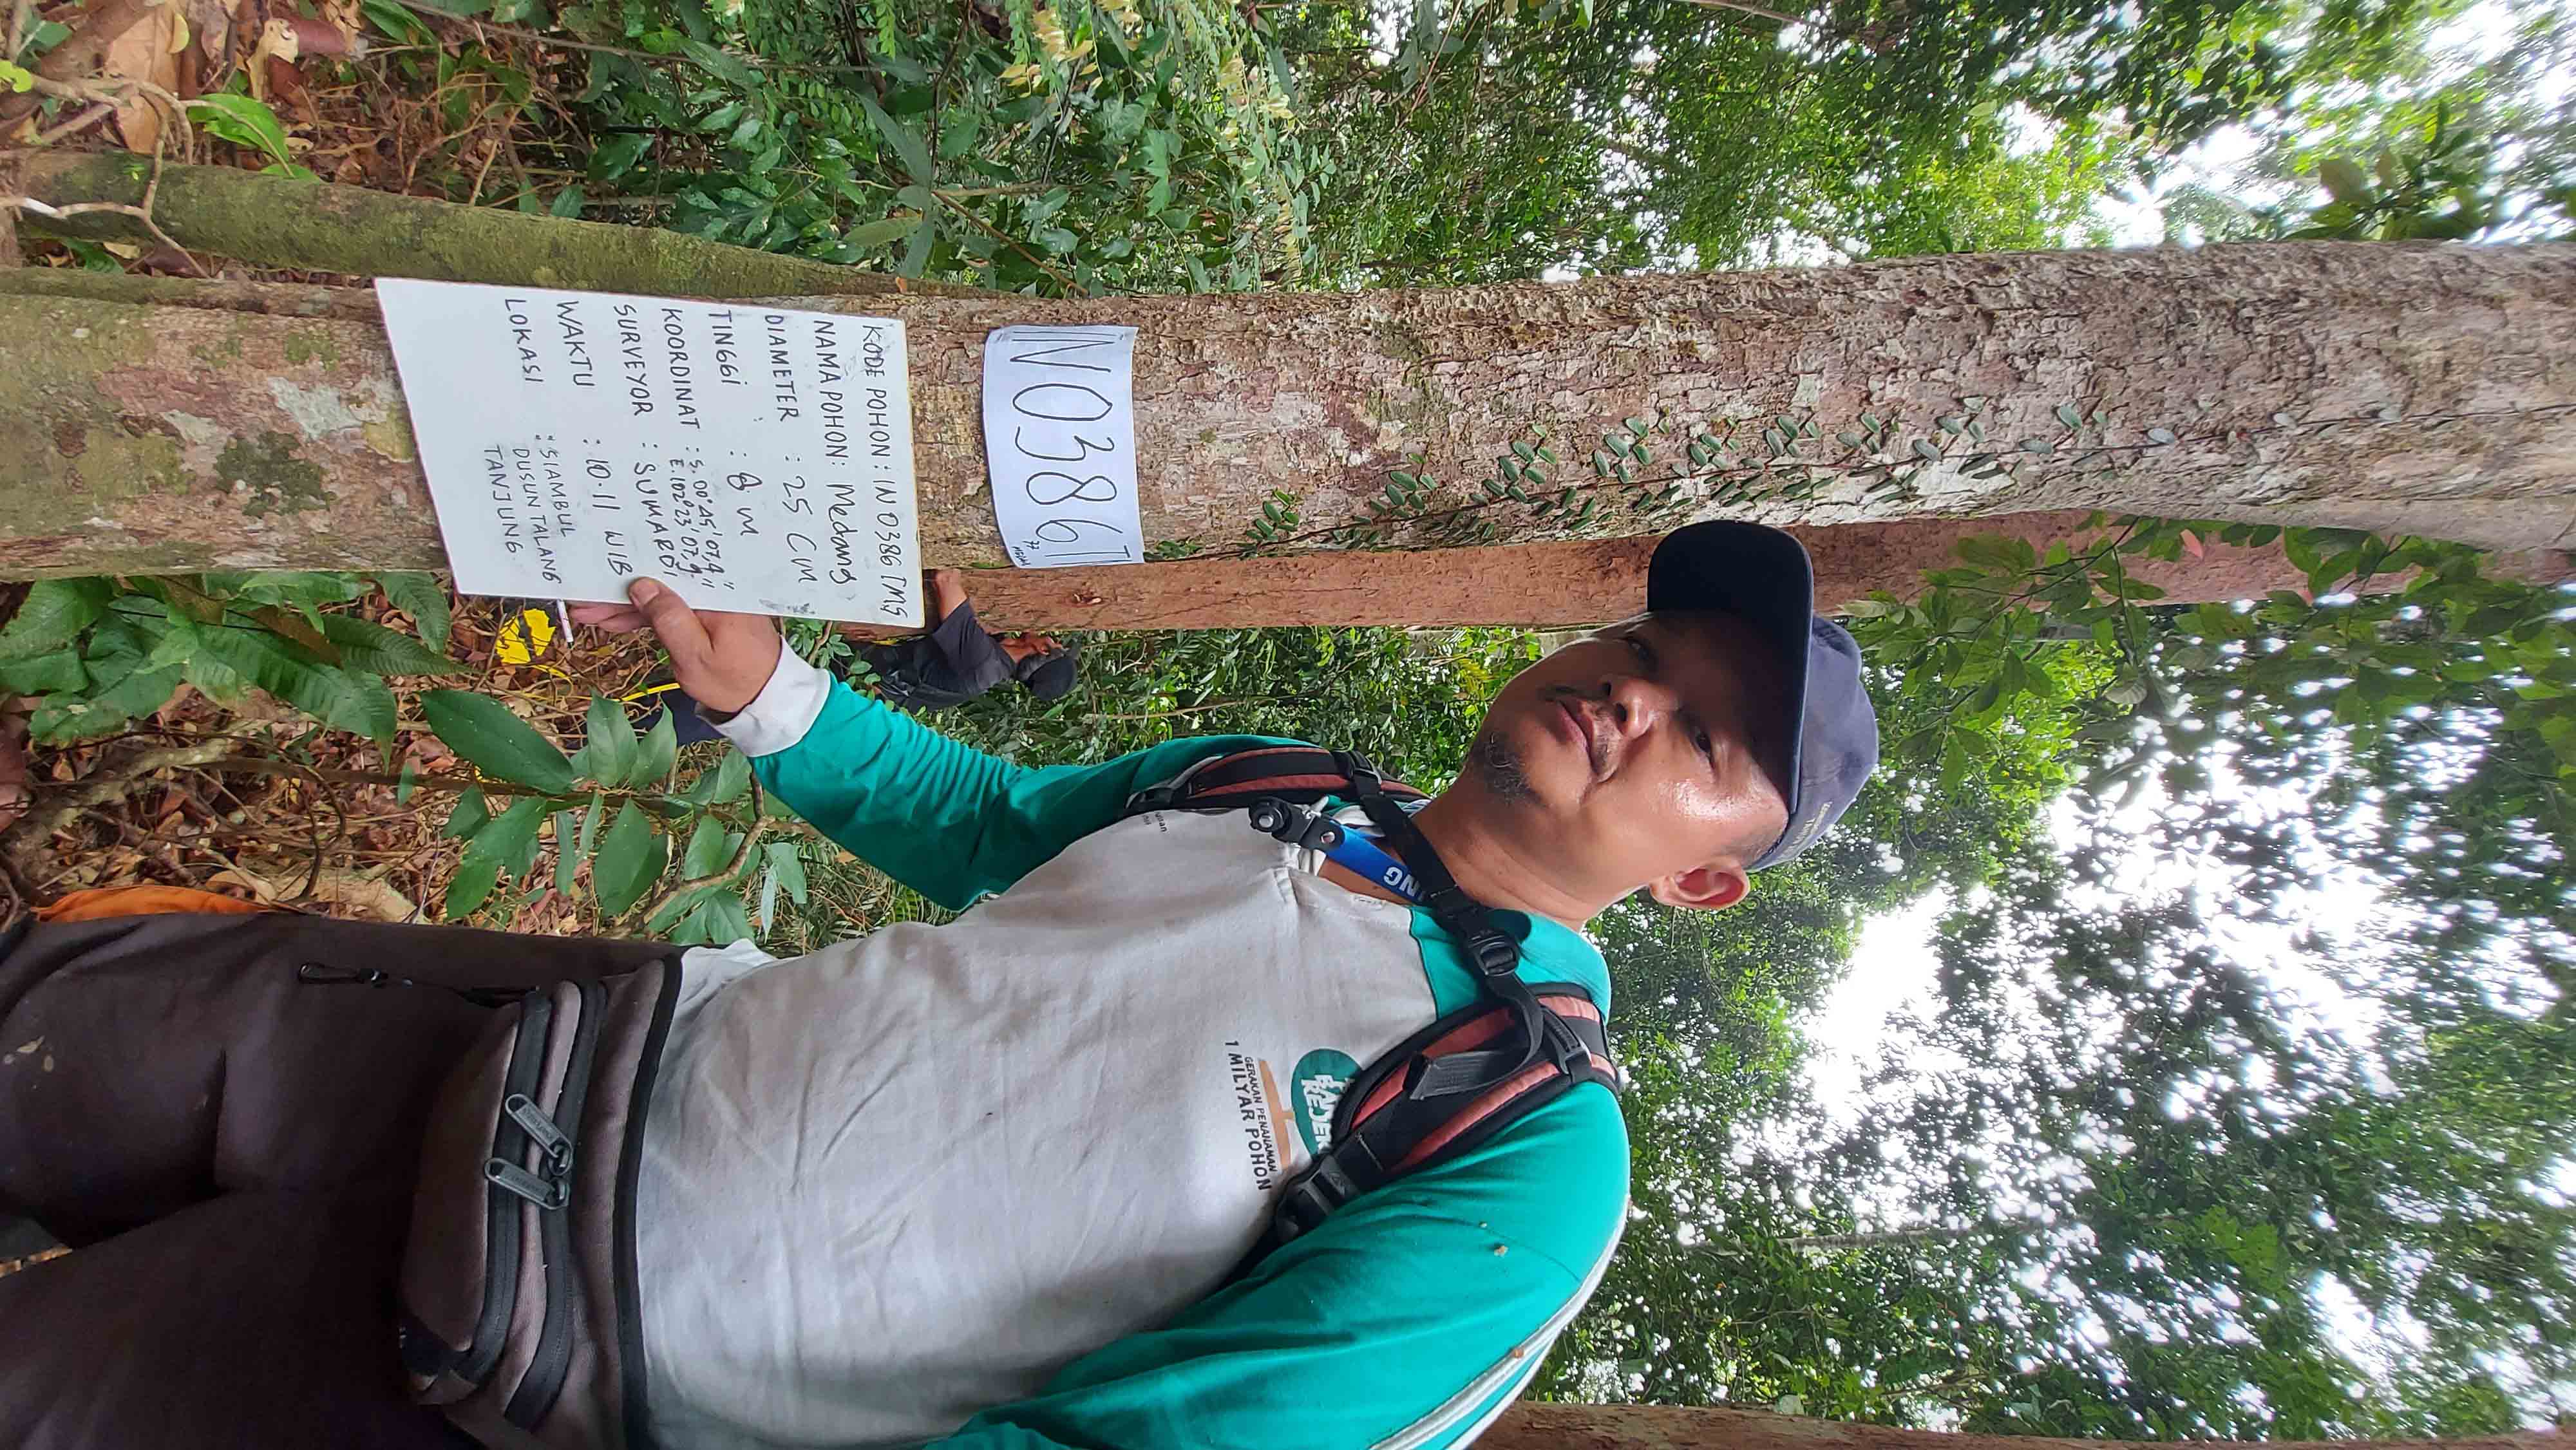 IN0386T
KODE POHON : IN 0386 TMS
NAMA POHON : Medang
DIAMETER : 25 CM
TINGGI : 8 m
KOORDINAT : S. 00° 45' 07.9"
E. 102° 23' 07.9"
SURVEYOR : SUMARDI
WAKTU : 10.11 WIB
LOKASI : SIAMBUL
DUSUN TALANG
TANJUNG
GERAKAN PENANAMAN
1 MILYAR POHON
NG